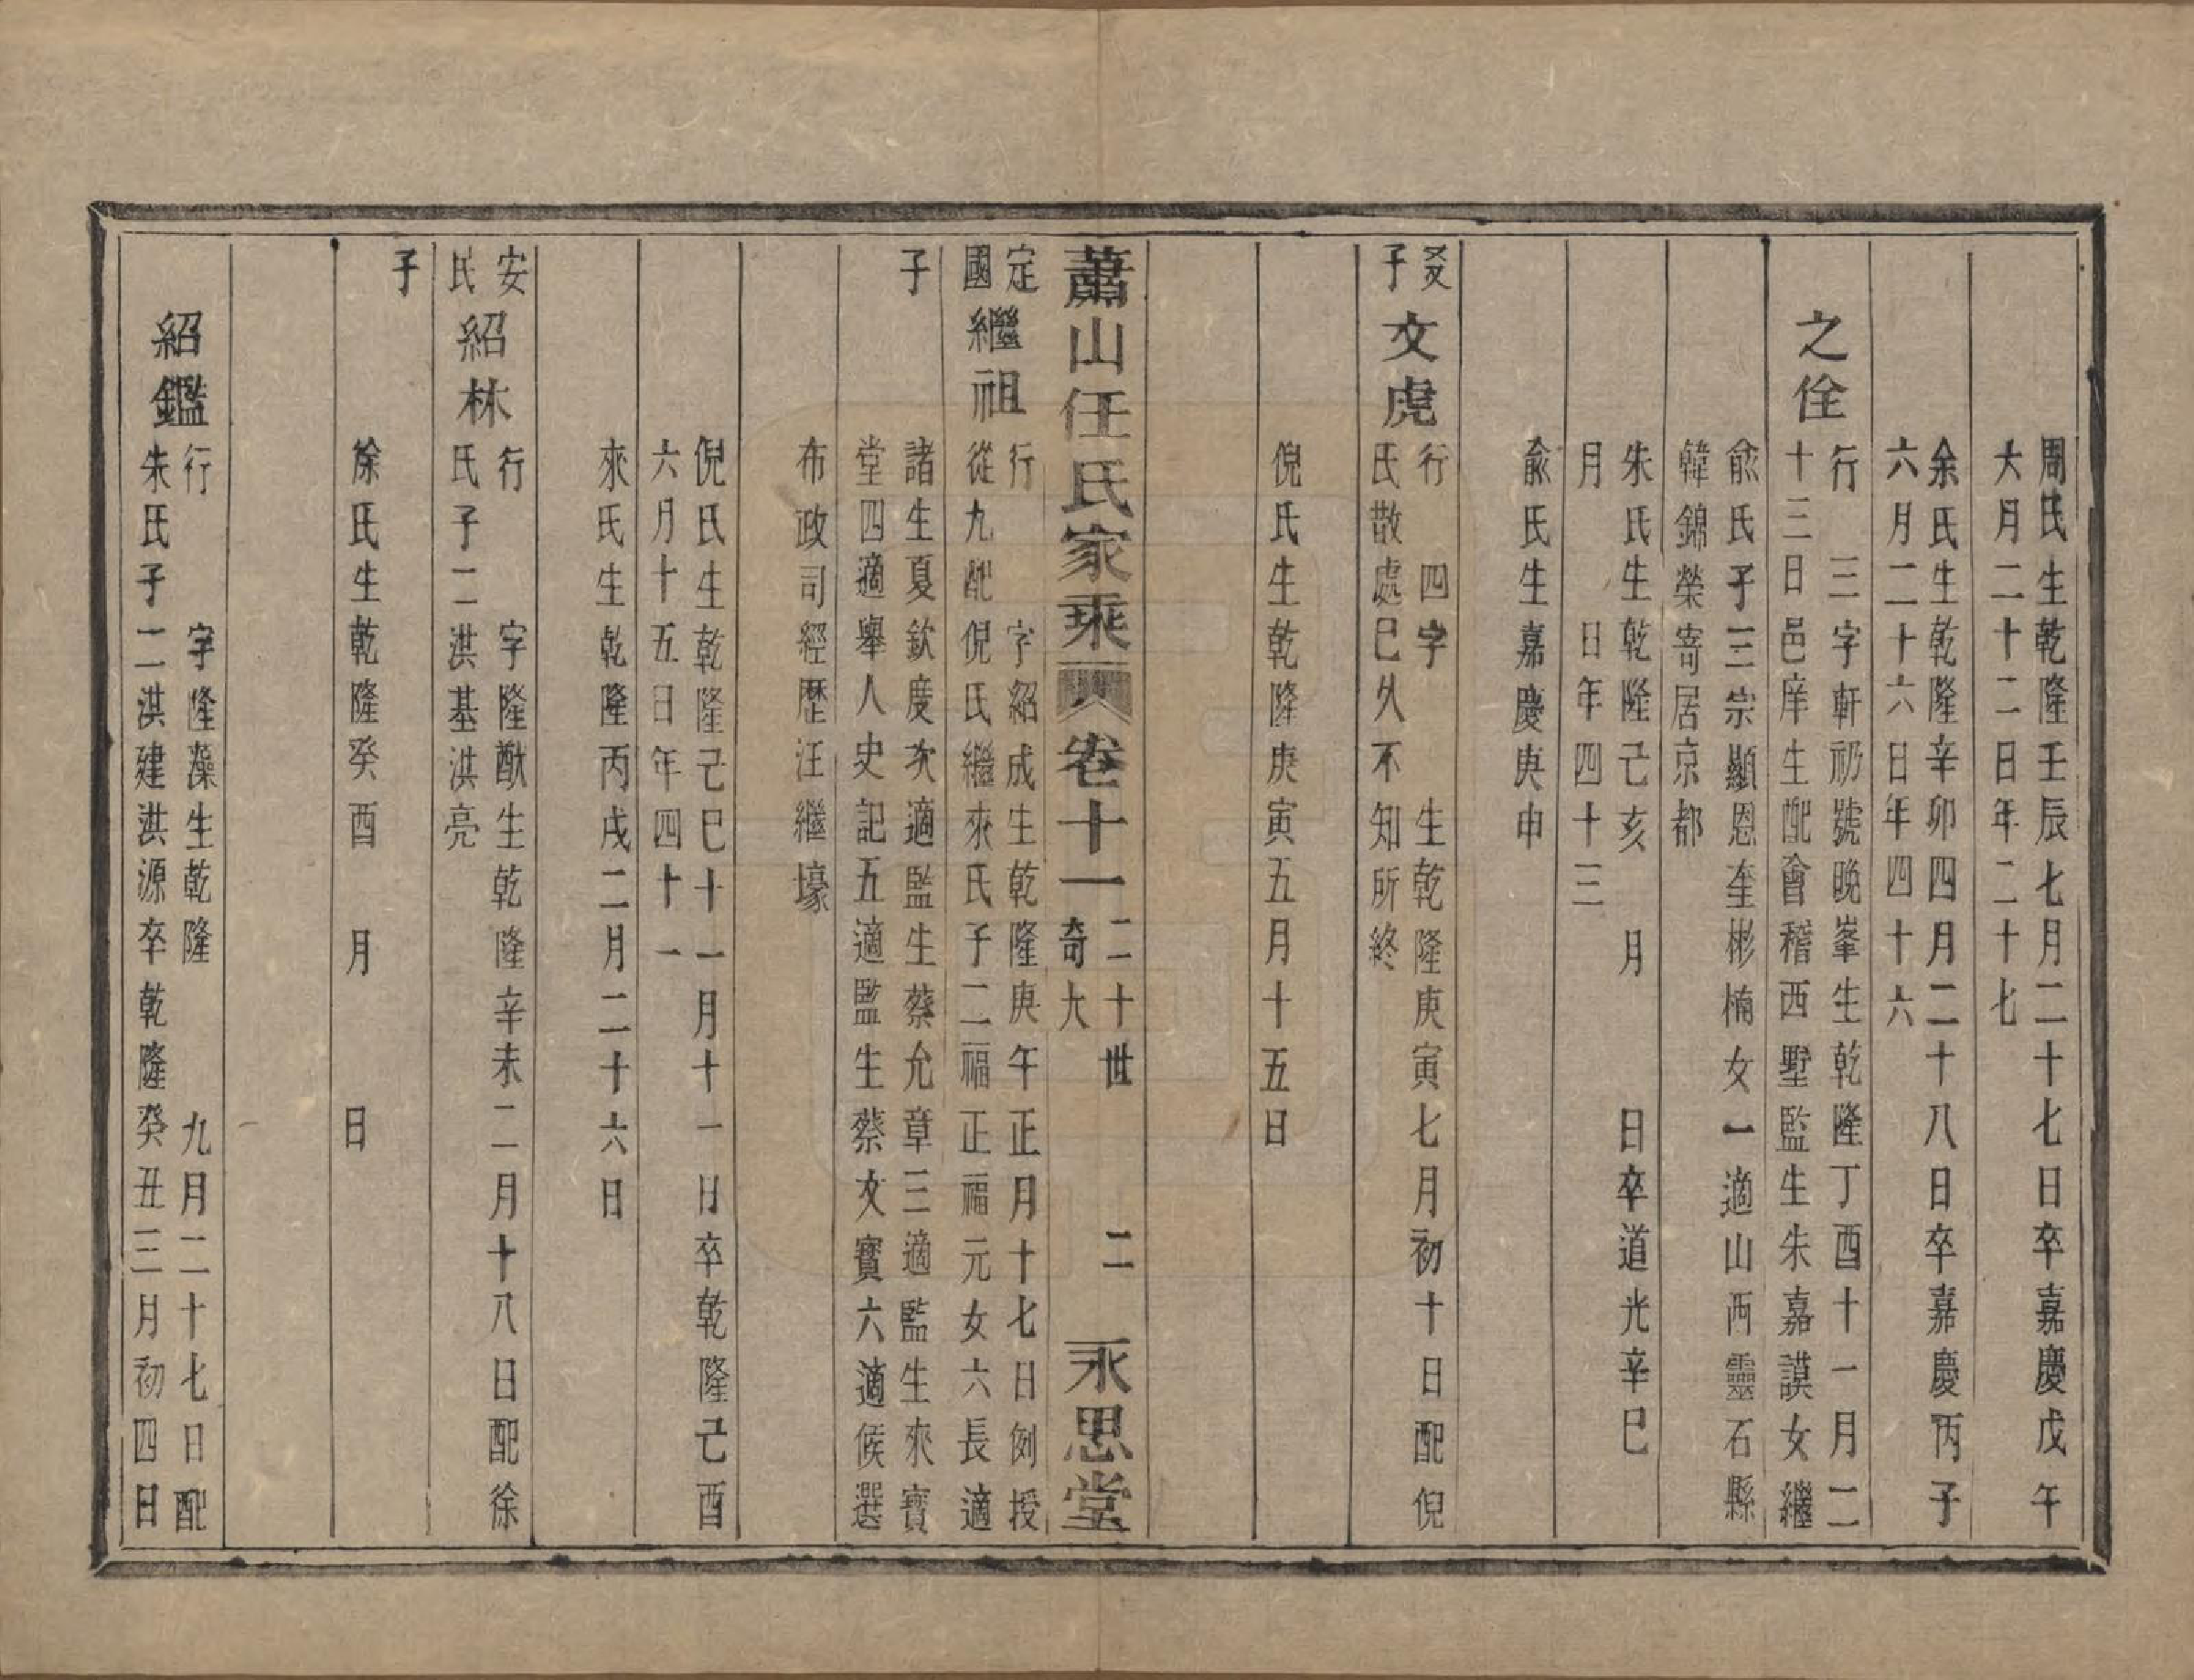 周氏生乾隆壬辰七月二十七日卒嘉慶戊午
六月二十二日年二十七
余氏生乾隆辛卯四月二十八日卒嘉慶丙子
六月二十六日年四十六
之佺
行 三字軒礽號晚峯生乾隆丁酉十一月二
十三日邑庠生配會稽西墅監生朱嘉謨女繼
俞氏子三宗顯恩奎彬楠女一適山西靈石縣
韓錦榮寄居京都
朱氏生乾隆己亥 月 日卒道光辛巳
月 日年四十三
俞氏生嘉慶庚申
叕子
文虎
行 四字 生乾隆庚寅七月初十日配倪
氏散處已久不知所終
倪氏生乾隆庚寅五月十五日
蕭山任氏家乘 卷十一 二十世 奇大 二 永思堂
定國
繼祖
行 字紹成生乾隆庚午正月十七日例授
從九配倪氏繼來氏子二福正福元女六長適
子
諸生夏欽度次適監生蔡允章三適監生來寶
堂四適舉人史記五適監生蔡文寶六適候選
布政司經歷汪繼壕
倪氏生乾隆己巳十一月十一日卒乾隆己酉
六月十五日年四十一
來氏生乾隆丙戌二月二十六日
安民
紹林
行 字隆猷生乾隆辛未二月十八日配徐
氏子二洪基洪亮
子
徐氏生乾隆癸酉 月 日
紹鑑
行 字隆藻生乾隆 九月二十七日配
朱氏子二淇建洪源卒乾隆癸丑三月初四日